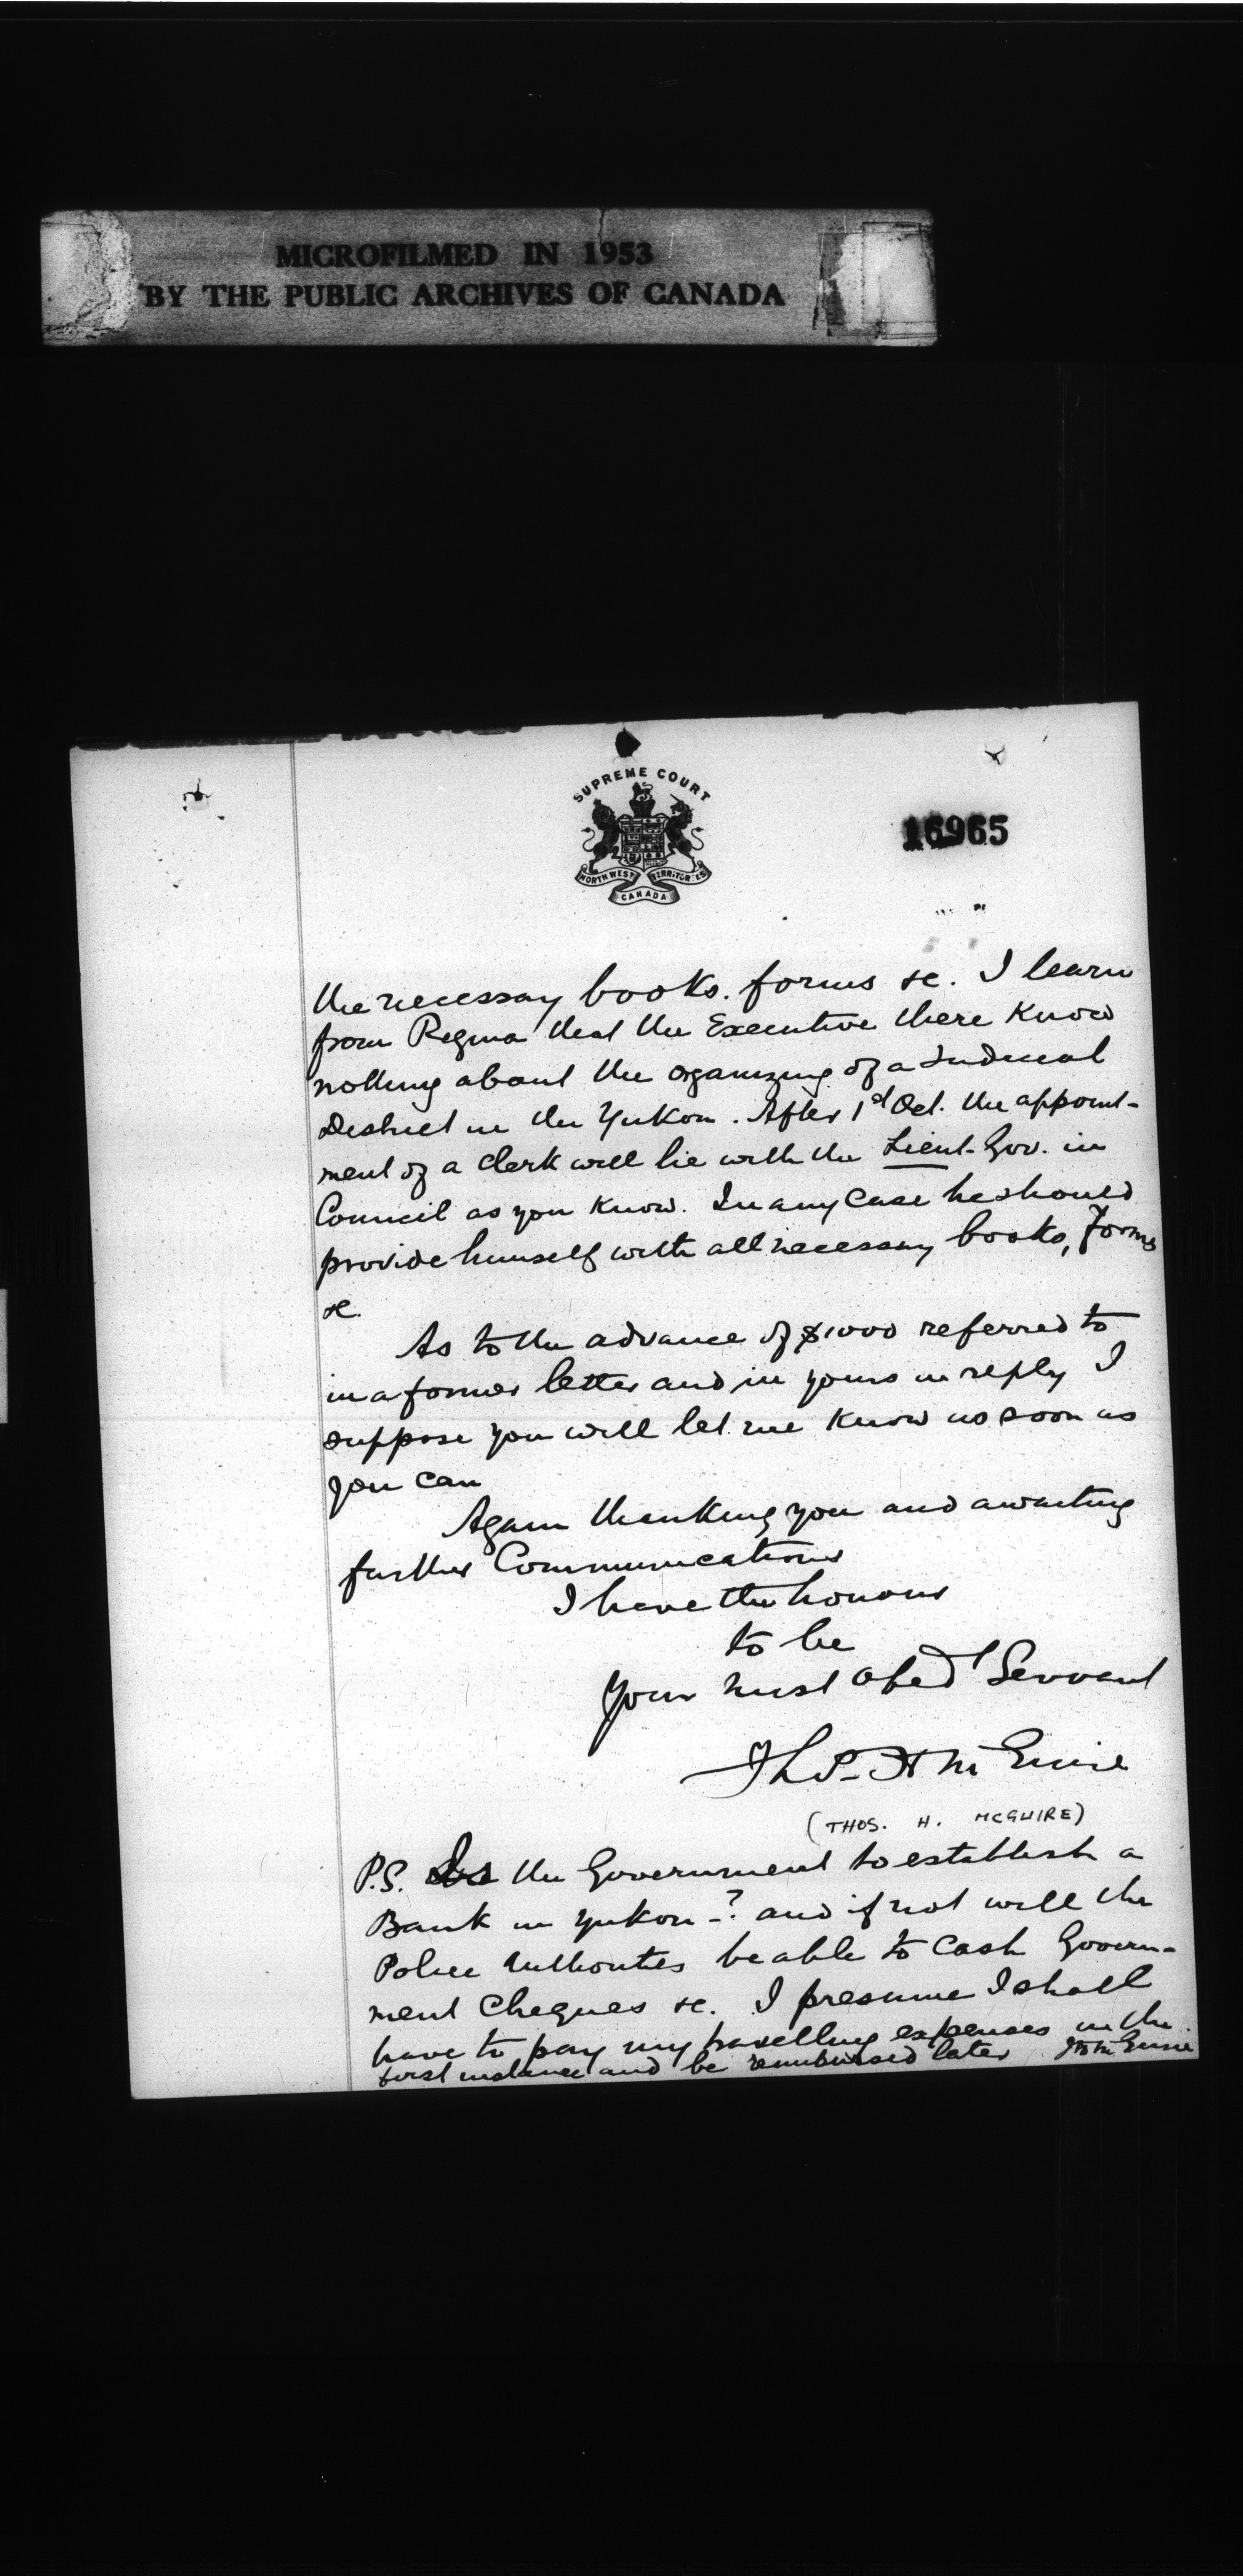 MICROFILMED IN 1953
BY THE PUBLIC ARCHIVES OF CANADA
SUPREME COURT
NORTH WEST TERRITORIES
CANADA
16965
the necessary books. forms &c. I learn
from Regina that the Executive there know
nothing about the organizing of a Judicial
District in the Yukon. After 1st Oct. the appoint-
ment of a Clerk will lie with the Lieut-Gov. in
Council as you know. In any case he should
provide himself with all necessary books, forms
&c.
As to the advance of $1000 referred to
in a former letter and in yours in reply I
suppose you will let me know as soon as
you can
Again thanking you and awaiting
further Communications
I have the honour
to be
Your most obed't Servant
Thos H McGuire
(THOS. H. MCGUIRE)
P.S. Is the Government to establish a
Bank in Yukon-? and if not will the
Police Authorities be able to cash Govern-
ment Cheques &c. I presume I shall
have to pay my travelling expenses in the
first instance and be reimbursed later THMcGuire